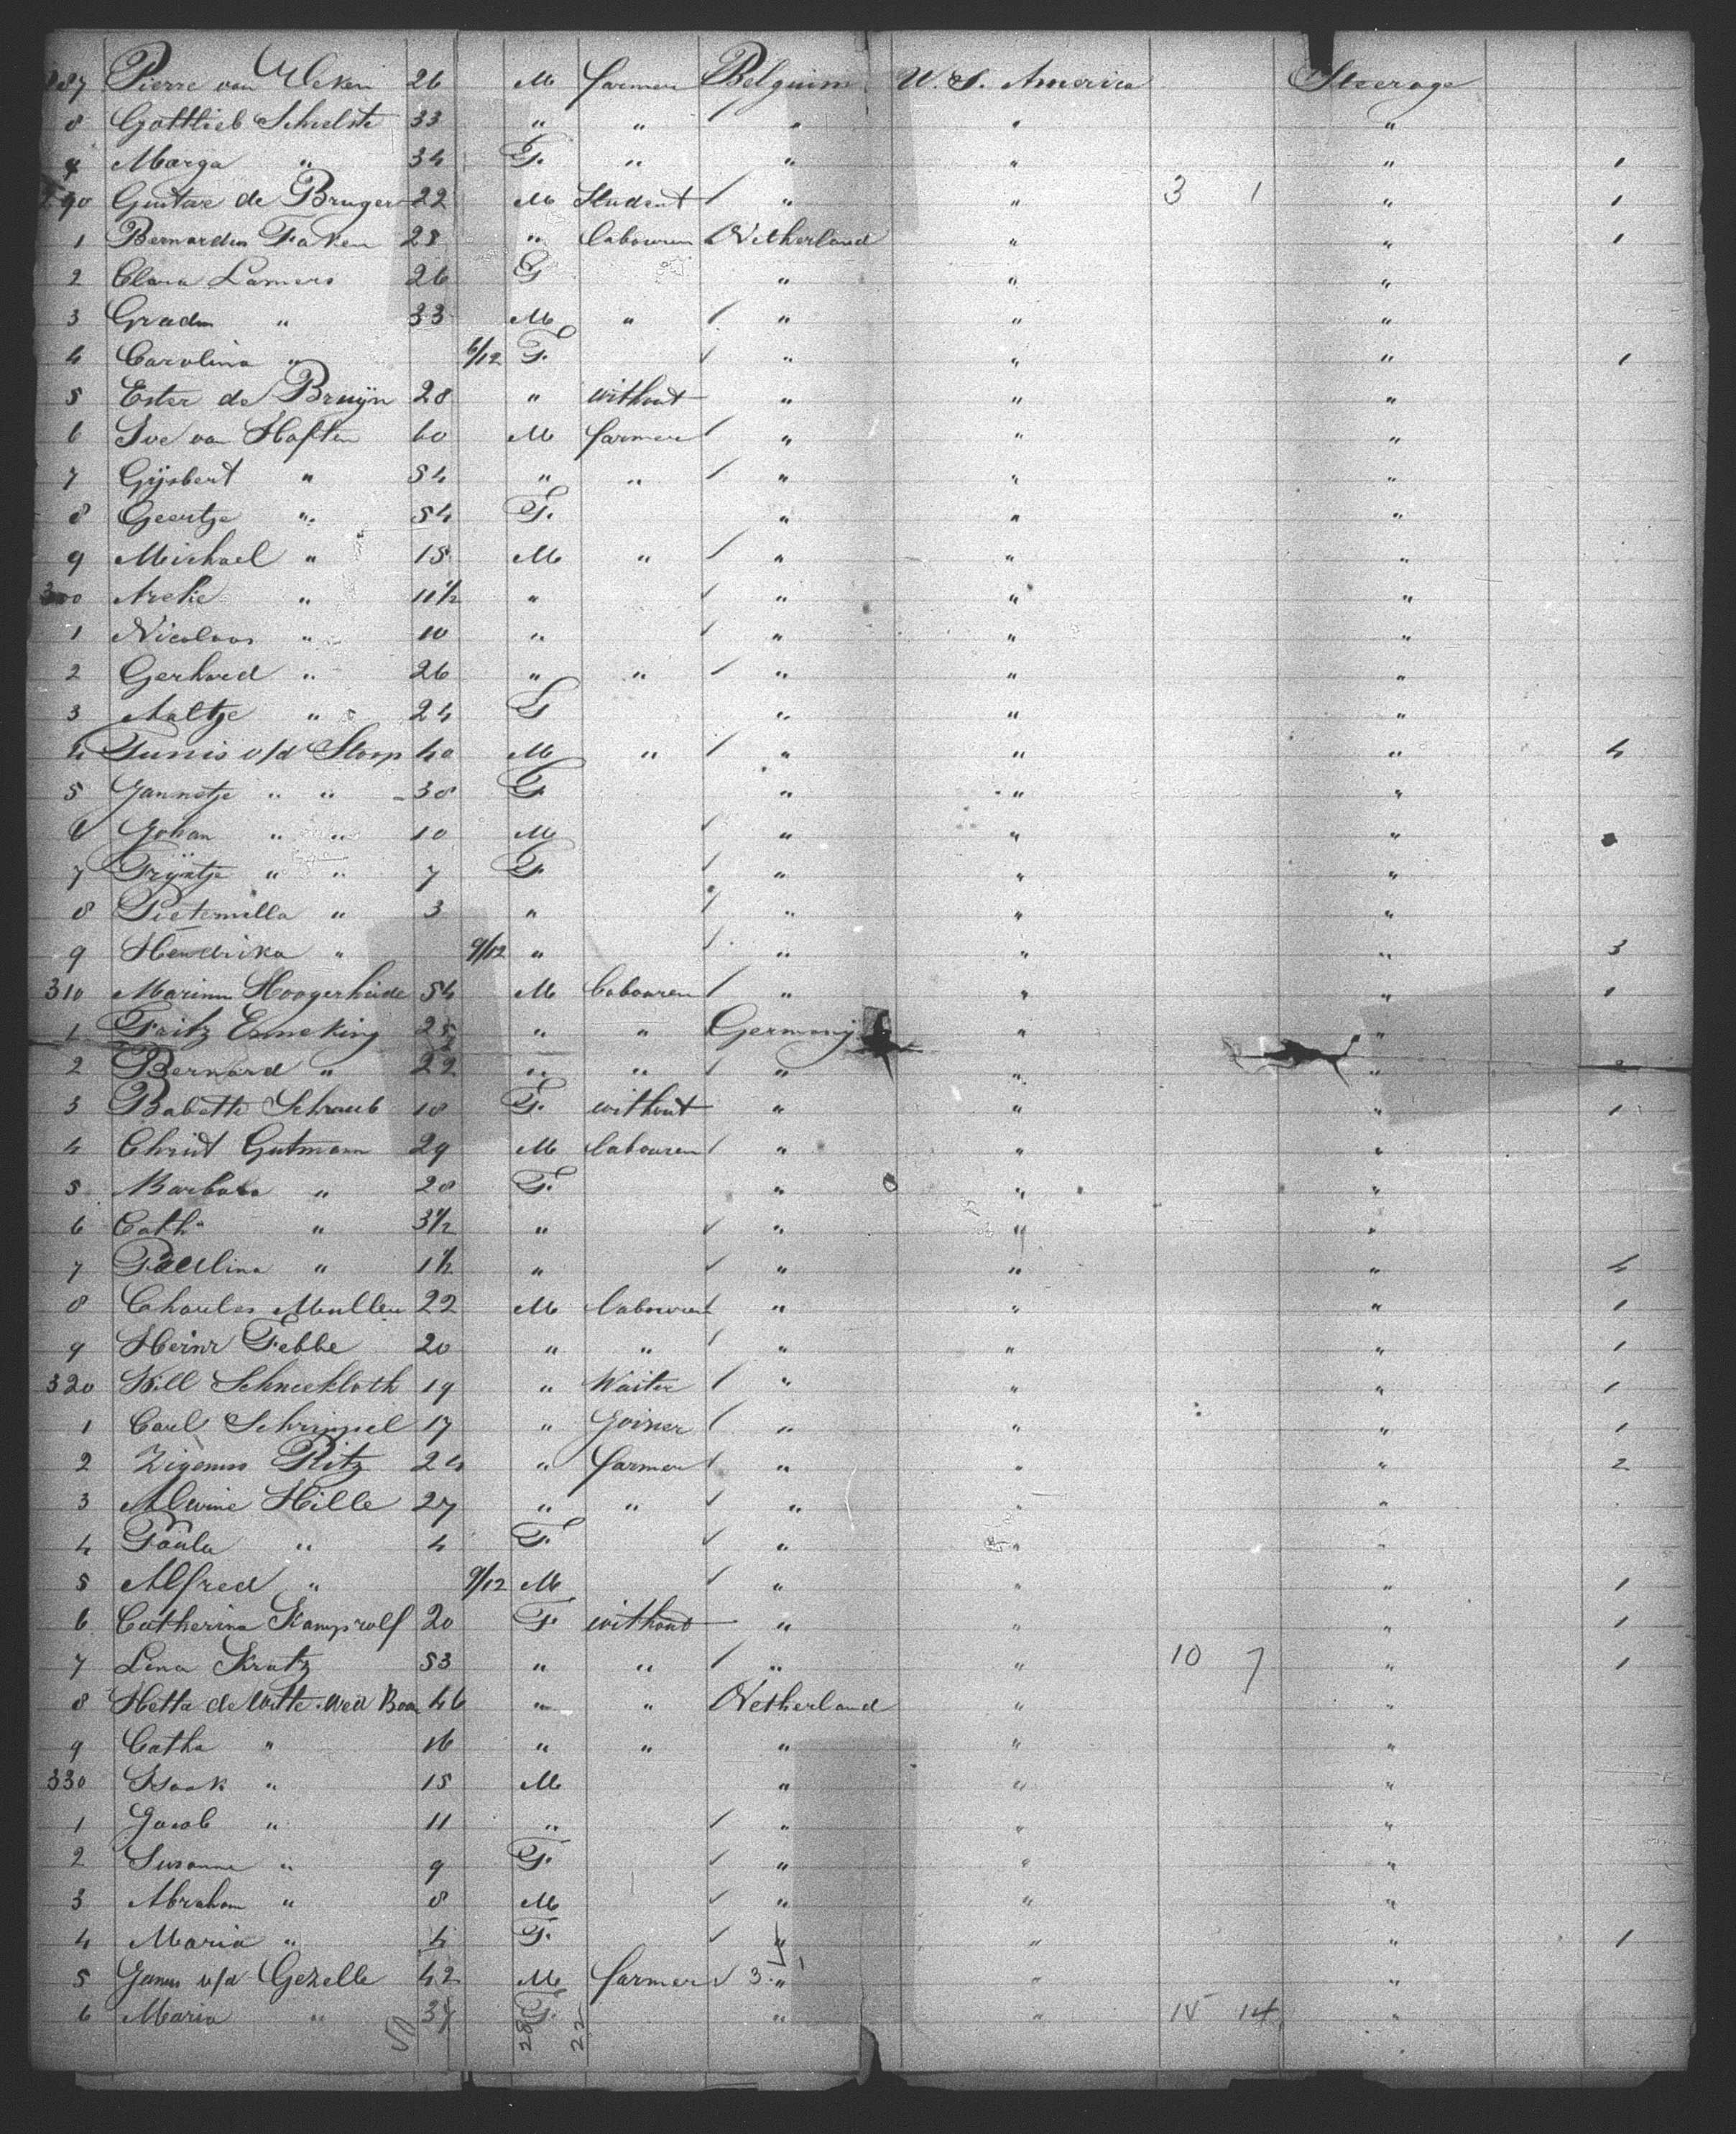 287 Pierre van Ueken 26 M farmer Belguim U. S. America Steerage
8 Gottlieb Schulste 33 " " / " " "
9 Marga " 34 F. " " " " 1
290 Gustave de Bruger 22 M Student / " " 3 1 " 1
1 Bernardus Faken 28 " labourer / Netherland " " 1
2 Clara Lamers 26 F " " "
3 Gradus " 33 M " / " " "
4 Carolina " 6/12 F. / " " " 1
5 Ester de Bruÿn 28 " without " " "
6 Ive van Haften 60 M farmer / " " "
7 Gÿsbert " 54 " " / " " "
8 Geertje " 54 F. " " "
9 Michael " 15 M " / " " "
300 Arekie " 11 1/2 " / " " "
1 Nicolaas " 10 " / " " "
2 Gerhard " 26 " " / " " "
3 Aaltje " 24 F " " "
4 Tunis v/d Stoop 40 M " / " " " 4
5 Jannetje " " 38 F " " "
6 Johan " " 10 M / " " "
7 Trÿntje " " 7 F. / " " "
8 Pietemella " 3 " / " " "
9 Hendrika " 9/12 " / " " " 3
310 Marinus Hoogerheide 54 M labourer / " " " 1
1 Fritz Enneking 25 " " Germanÿ " "
2 Bernard " 22 " " / " " " 2
3 Babette Schraub 18 F. without " " " 1
4 Christ Gutmann 29 M labourer / " " "
5 Barbara " 28 F. " " "
6 Cath " 3 1/2 " / " " "
7 Paulina " 1 1/2 " / " " " 4
8 Charles Muller 22 M labourer / " " " 1
9 Heinr Febbe 20 " " / " " " 1
320 Will Schneekloth 19 " Waiter / " " " 1
1 Carl Schrimpel 17 " Joiner / " " " 1
2 Ritz 24 " farmer / " " " 2
3 Alwine Hille 27 " " / " " "
4 Paula " 4 F. / " " "
5 Alfred " 9/12 M / " " " 1
6 Catherina Kampwolf 20 F. without " " " 1
7 Lena Kratz 53 " " / " " 10 7 " 1
8 Hetta de Witte Wed Boon 46 " " Netherland " "
9 Catha " 16 " " " " "
330 Isaak " 15 M " " "
1 Jacob " 11 " / " " "
2 Susanne " 9 F. / " " "
3 Abraham " 8 M / " " "
4 Maria " 4 F. / " " " 1
5 v/d Gezelle 42 M farmer / 3 " " "
6 Maria " F. " " 15 14 "
50 28 22